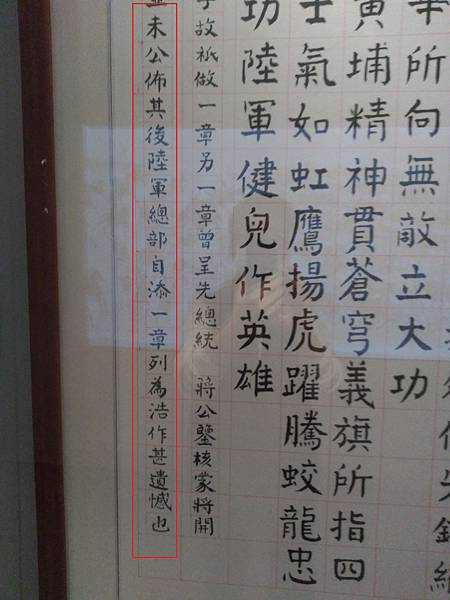 華所向無敵立大功
黃埔精神貫蒼穹義旗所指四
士氣如虹鷹揚虎躍騰蛟龍忠
功陸軍健兒作英雄
故祇做一章另一章曾呈先總統 蔣公鑒核蒙將開
並未公佈其後陸軍總部自添一章列為浩作甚遺憾也